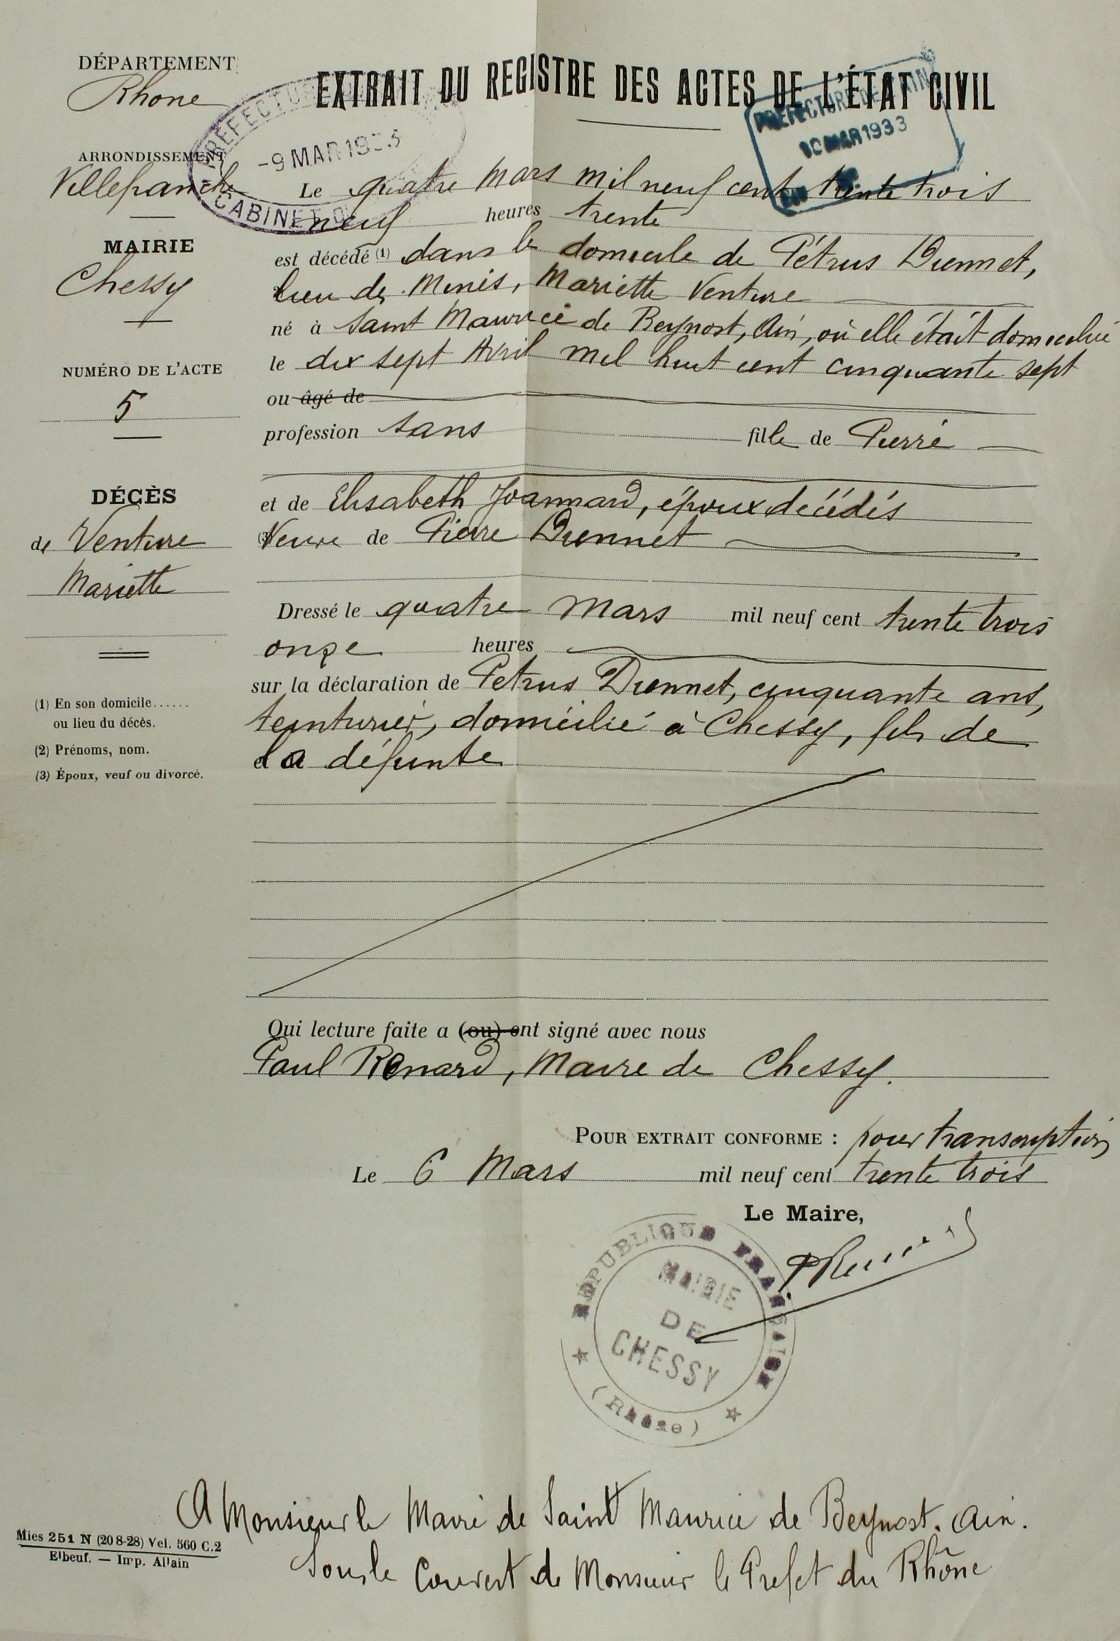 DÉPARTEMENT
Rhone
EXTRAIT DU REGISTRE DES ACTES DE L'ÉTAT CIVIL
PRÉFECTURE
-9 MAR 1933
CABINET
PRÉFECTURE DE L'AIN
10 MAR 1933
ARRONDISSEMENT
Villefranche
Le quatre Mars mil neuf cent trente trois
neuf heures trente
MAIRIE
Chessy
est décédé (1) dans le domicile de Pétrus Diennet,
lieu des Mines, Mariette Venture
né à Saint Maurice de Beynost, Ain, où elle était domiciliée
le dix sept Avril mil huit cent cinquante sept
NUMÉRO DE L'ACTE
5
ou âgé de
profession sans fille de Pierre
DÉCÈS
de Venture
Mariette
et de Elisabeth Joannard, époux décédés
(3) Veuve de Pierre Diennet
Dressé le quatre Mars mil neuf cent trente trois
onze heures
sur la déclaration de Petrus Diennet, cinquante ans,
teinturier, domicilié à Chessy, fils de
la défunte
(1) En son domicile......
ou lieu du décès.
(2) Prénoms, nom.
(3) Époux, veuf ou divorcé.
Qui lecture faite a (ou) ont signé avec nous
Paul Renard, Maire de Chessy.
POUR EXTRAIT CONFORME : pour transcription
Le 6 Mars mil neuf cent trente trois
Le Maire,
PRenard
RÉPUBLIQUE FRANÇAISE
MAIRIE
DE
CHESSY
(Rhône)
A Monsieur le Maire de Saint Maurice de Beynost. Ain.
Sous le Couvert de Monsieur le Prefet du Rhône
Mies 251 N (20 8-28) Vel. 560 C.2
Elbeuf. — Imp. Allain